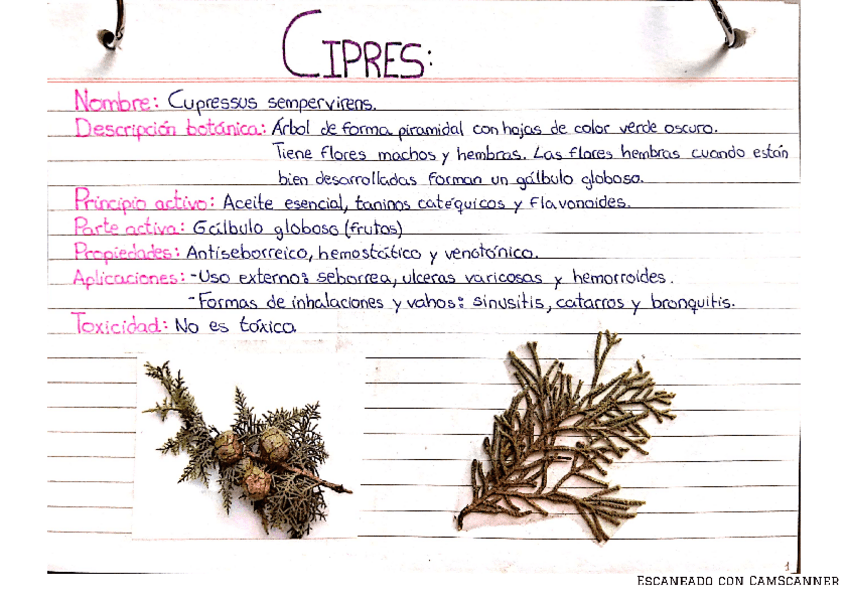 CIPRES:
Nombre: Cupressus sempervirens.
Descripción botánica: Árbol de forma piramidal con hojas de color verde oscuro.
Tiene flores machos y hembras. Las flores hembras cuando están
bien desarrolladas forman un gálbulo globoso.
Principio activo: Aceite esencial, taninos catéquicos y flavonoides.
Parte activa: Gálbulo globoso (frutos)
Propiedades: Antiseborreico, hemostático y venotónico.
Aplicaciones: -Uso externo: seborrea, ulceras varicosas y hemorroides.
-Formas de inhalaciones y vahos: sinusitis, catarros y bronquitis.
Toxicidad: No es tóxica
1
ESCANEADO CON CAMSCANNER